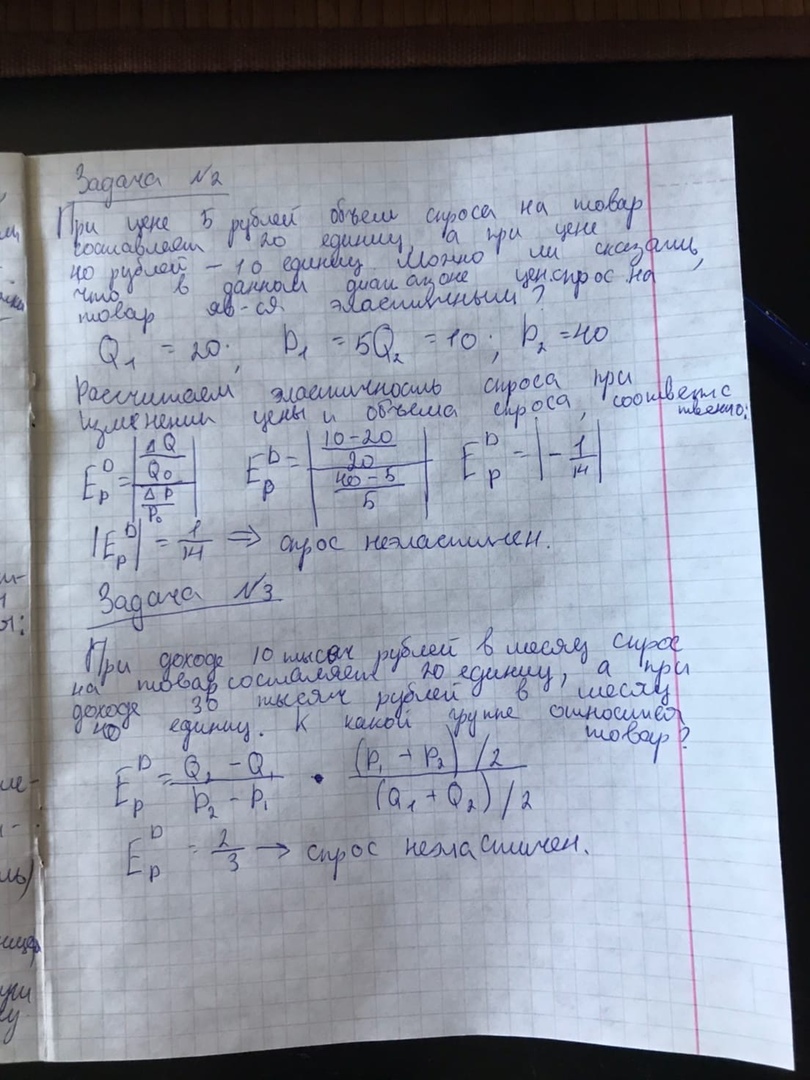 Задача №2
При цене 5 рублей объем спроса на товар
составляет 20 единиц, а при цене
40 рублей – 10 единиц. Можно ли сказать,
что в данном диапазоне цен спрос на
товар яв-ся эластичным?
Q₁ = 20; P₁ = 5 Q₂ = 10; P₂ = 40
Рассчитаем эластичность спроса при
изменении цены и объема спроса, соответственно:
E_P^D = |(ΔQ/Q₀)/(ΔP/P₀)| E_P^D = |((10-20)/20)/((40-5)/5)| E_P^D = |-1/14|
|E_P^D| = 1/14 ⇒ спрос неэластичен.
Задача №3
При доходе 10 тысяч рублей в месяц спрос
на товар составляет 20 единиц, а при
доходе 30 тысяч рублей в месяц
40 единиц. К какой группе относится
товар?
E_P^D = (Q₂ - Q₁)/(P₂ - P₁) · ((P₁ + P₂)/2)/((Q₁ + Q₂)/2)
E_P^D = 2/3 → спрос неэластичен.